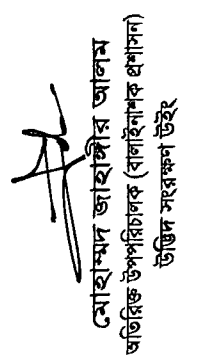 মোহাম্মদ জাহাঙ্গীর আলম
অতিরিক্ত উপপরিচালক (বালাইনাশক প্রশাসন)
উদ্ভিদ সংরক্ষণ উইং